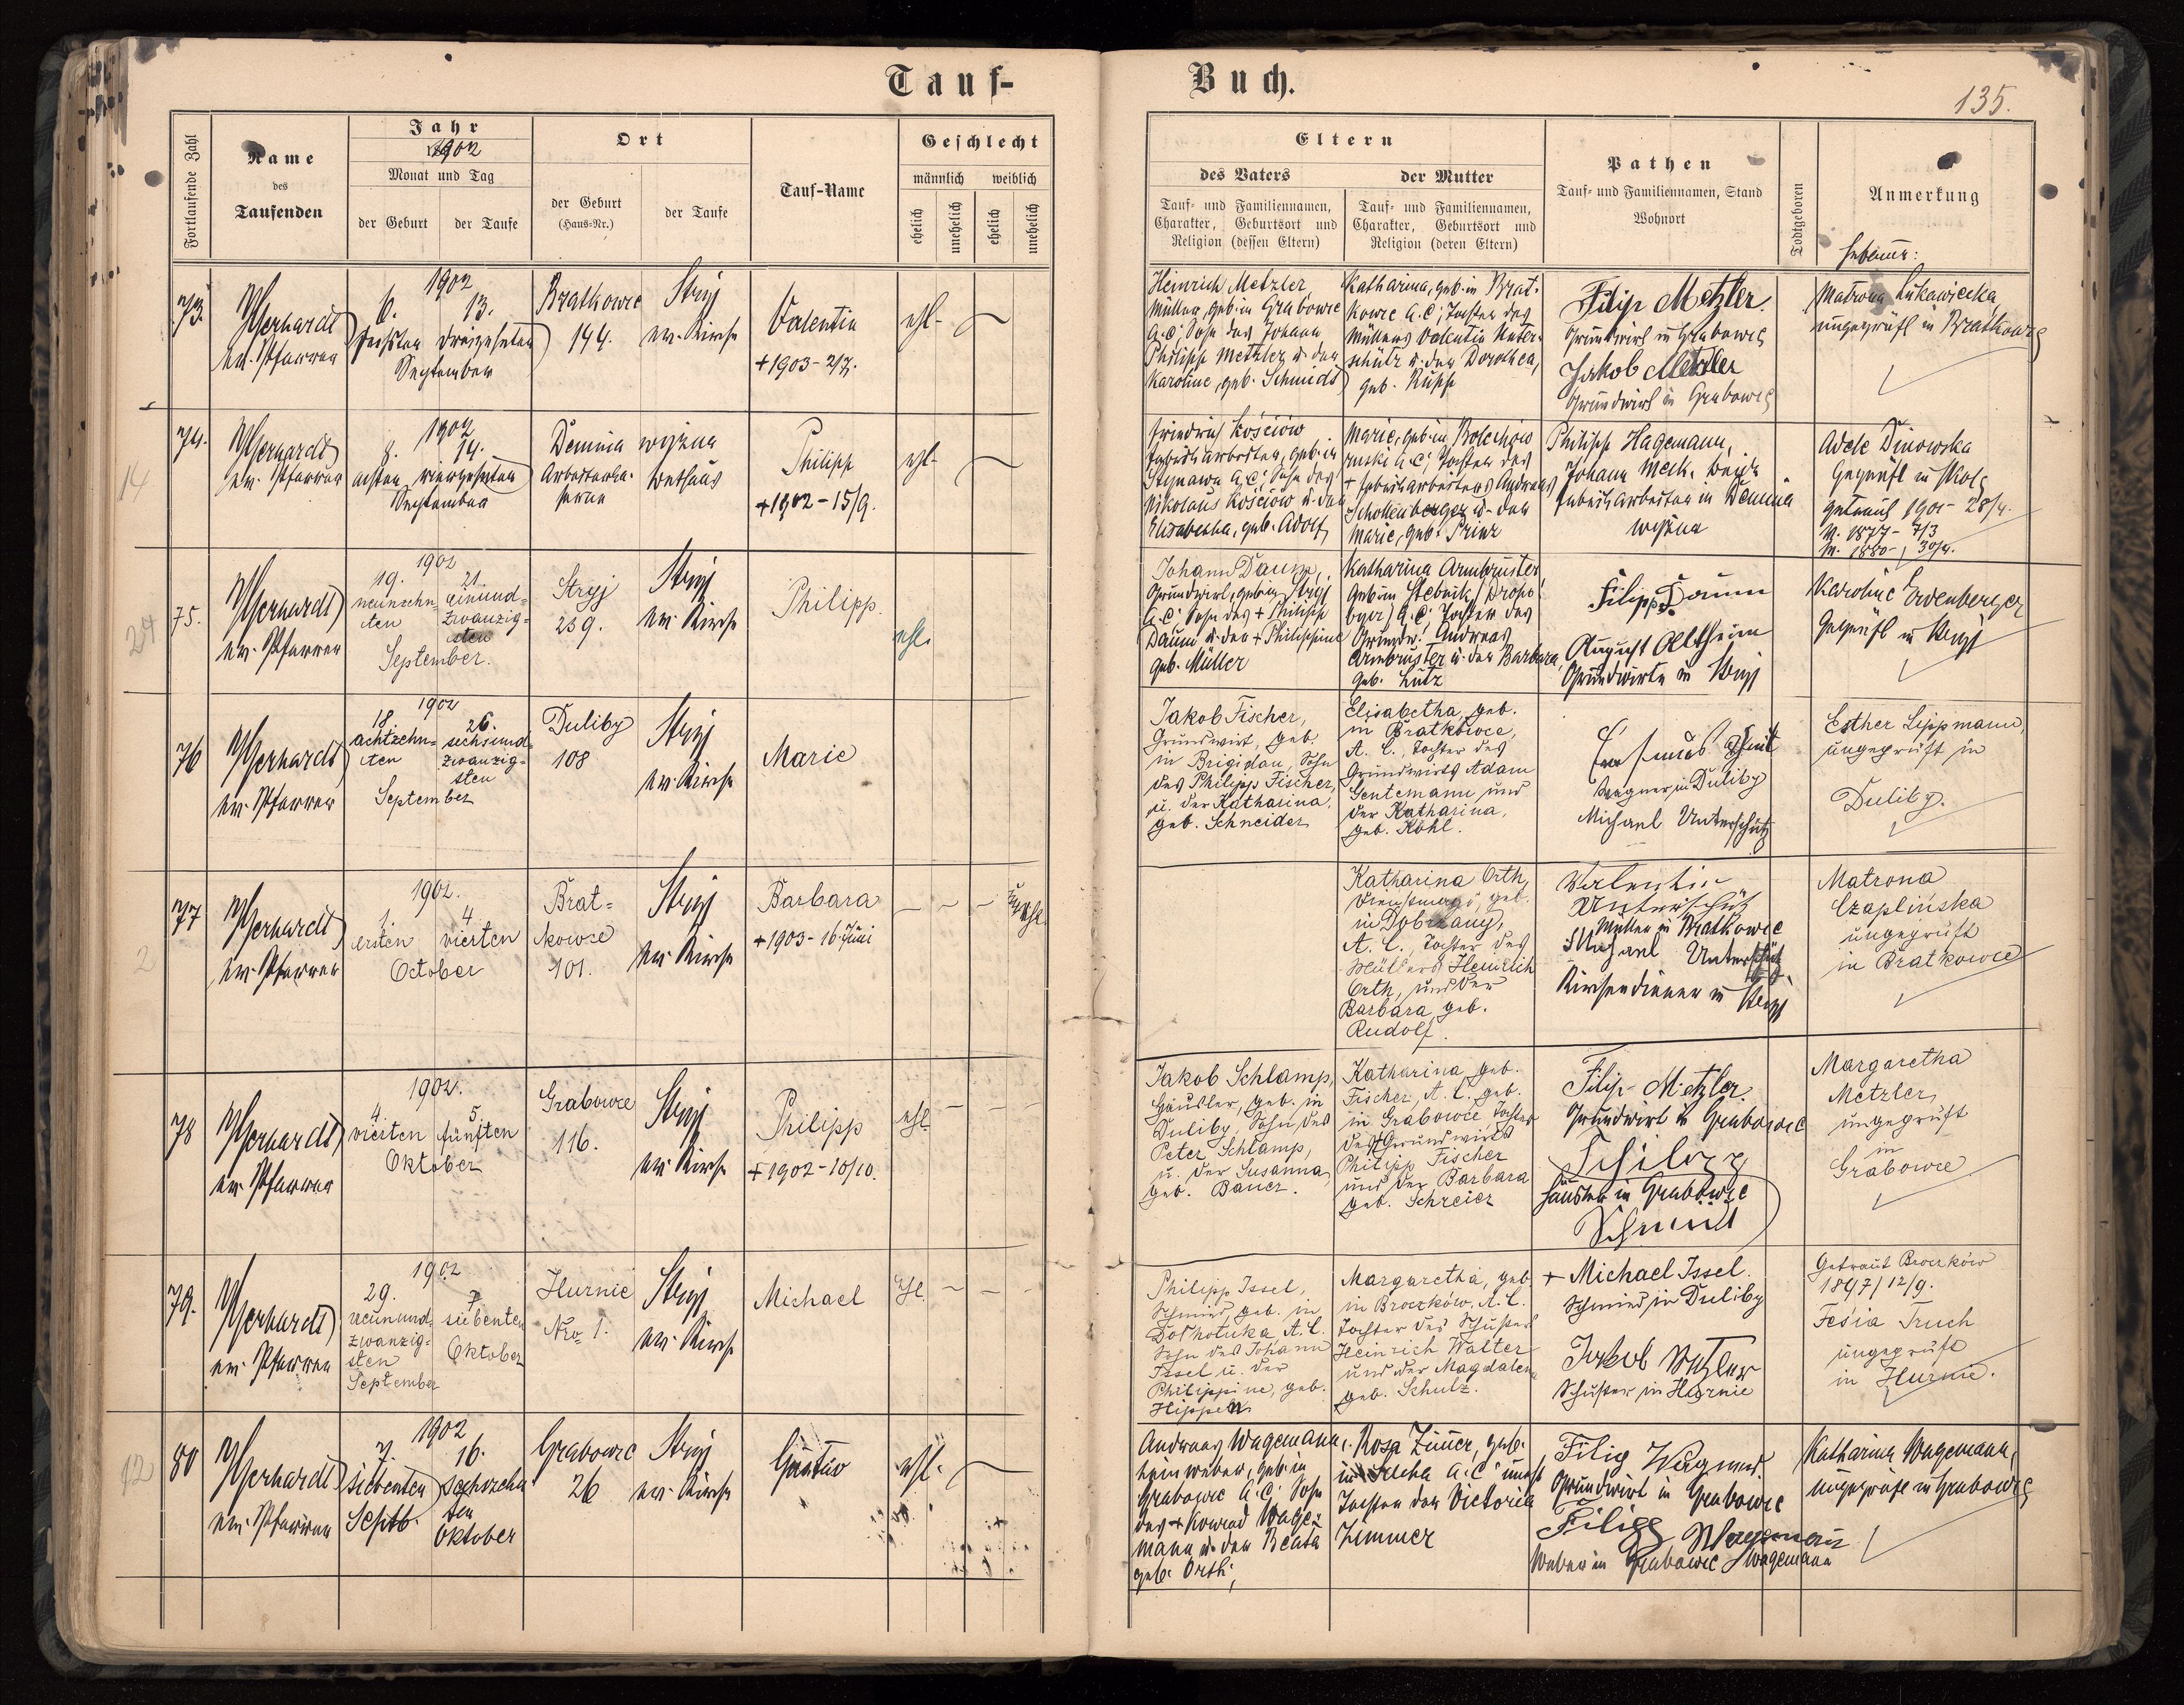 Tauf-
Buch.
135.
Fortlaufende Zahl
Name
des
Taufenden
Jahr
1902
Monat und Tag
der Geburt
der Taufe
Ort
der Geburt
(Haus-Nr.)
der Taufe
Tauf-Name
Geschlecht
männlich weiblich
ehelich
unehelich
ehelich
unehelich
Eltern
des Vaters
Tauf- und Familiennamen,
Charakter, Geburtsort und
Religion (dessen Eltern)
der Mutter
Tauf- und Familiennamen,
Charakter, Geburtsort und
Religion (deren Eltern)
Pathen
Tauf- und Familiennamen, Stand
Wohnort
Todtgeboren
Anmerkung
Hebamme:
73.
ev. Pfarrer
1902
6. 13.
sechsten dreizehnten
September
Bratkowce
144.
Stryj
ev. Kirche
Valentin
+ 1903 - 2/7.
ehl-
Heinrich Metzler
Müller, geb. in Grabowce
A.C; Sohn des Johann
Philipp Metzler u. der
Karoline, geb. Schmidt
Katharina, geb. in Brat-
kowce A.C; Tochter des
Müllers Valentin Unter-
schütz u. der Dorothea,
geb. Rupp
Filip Metzler
Grundwirt in Grabowce
Jakob Metzler
Grundwirt in Grabowce
Matrona Lukawiecka,
ungeprüft in Bratkowce
14
74.
ev. Pfarrer
1902
8. 14.
achten vierzehnten
September
Demnia wyżna
Arbeiterka-
serne
Bethaus
Philipp
+ 1902 - 15/9.
ehl-
Friedrich Kościów
Fabriksarbeiter, geb. in
Stynawa A.C; Sohn des
Nikolaus Kościów u. der
Elisabetha, geb. Adolf
Marie, geb. in Bolechów
ruski A.C; Tochter des
+ Fabriksarbeiters Andreas
Schollenberger u. der
Marie, geb. Prinz
Philipp Hagemann,
Johann Meck, beide
Fabriksarbeiter in Demnia
wyżna
Adele Dinowska
geprüft in Skole
getraut 1901 - 28/4.
V. 1877 - 7/3
M. 1880 - 30/4.
24
75.
ev. Pfarrer
1902
19. 21.
neunzehn- einund-
ten zwanzig-
sten
September.
Stryj
259.
Stryj
ev. Kirche
Philipp.
ehl.
Johann Daum,
Grundwirt, geb. in Stryj
A.C; Sohn des + Philipp
Daum u. der + Philippine
geb. Müller
Katharina Armbruster
geb. in Stebnik (Droho-
bycz) A.C; Tochter des
Grundw. Andreas
Armbruster u. der Barbara,
geb. Lutz
Filipp Daum
August Altheim
Grundwirte in Stryj
Karoline Erdenberger
geprüft in Stryj
76
ev. Pfarrer
1902
18. 26.
achtzehn- sechsund-
ten zwanzig-
sten
September
Duliby
108
Stryj
ev. Kirche
Marie
Jakob Fischer,
Grundwirt, geb.
in Brigidau, Sohn
des Philipp Fischer,
u. der Katharina,
geb. Schneider
Elisabetha, geb.
in Bratkowce,
A. C., Tochter des
Grundwirts Adam
Gentemann und
der Katharina,
geb. Köhl.
Wagner in Duliby
Michael Unterschütz
Esther Lippmann,
ungeprüft in
Duliby.
2
77
ev. Pfarrer
1902.
1. 4.
ersten vierten
October
Brat-
kowce
101.
Stryj
ev. Kirche
Barbara
+ 1903 - 16. Juni
unehl
Katharina Orth,
Dienstmagd, geb.
in Dobrzany,
A. C., Tochter des
Müllers Heinrich
Orth, und der
Barbara, geb.
Rudolf.
Valentin
Unterschütz
Müller in Bratkowce
Michael Unterschütz
Kirchendiener in Stryj
Matrona
Czaplińska
ungeprüft
in Bratkowce
78
ev. Pfarrer
1902.
4. 5.
vierten fünften
Oktober
Grabowce
116.
Stryj
ev. Kirche
Philipp
+ 1902 - 10/10.
ehl.
Jakob Schlamp,
Häusler, geb. in
Duliby, Sohn des
Peter Schlamp,
u. der Susanna,
geb. Bauer.
Katharina geb.
Fischer, A. C. geb.
in Grabowce Tochter
des + Grundwirts
Philipp Fischer
und der Barbara
geb. Schreier
Filip Metzler.
Grundwirt in Grabowce
Häusler in Grabowce
Schmid
Margaretha
Metzler,
ungeprüft
in
Grabowce
79.
ev. Pfarrer
1902
29. 7.
neunund- siebenten
zwanzig- Oktober
sten
September
Hurnie
Nro 1.
Stryj
ev. Kirche
Michael
ehl.
Philipp Issel,
Schmied, geb. in
Dołhołuka, A. C.
Sohn des Johann
Issel u. der
Philippine, geb.
Hippen
Margaretha, geb.
in Broczków, A. C.
Tochter des Schusters
Heinrich Walter
und der Magdalena
geb. Schulz.
+ Michael Issel.
Schmied in Duliby
Jakob
Schuster in Hurnie
Getraut Broczków
1897/12/9.
Fesia Truch
ungeprüft
in Hurnie.
12
80
ev. Pfarrer
1902
7. 16.
siebenten sechszehn-
Septb. ten
Oktober
Grabowce
26
Stryj
ev. Kirche
Gustav
ehl.
Andreas Wagemann,
Leinweber, geb. in
Grabowce A.C; Sohn
des + Konrad Wage-
mann u. der Beata
geb. Orth;
Rosa Zimmer, geb.
A.C; unehl.
Tochter der Victoria
Zimmer
Filip Wagemann
Grundwirt in Grabowce
Filipp Wagemann
Weber in Grabowce Wagemann
Katharina Wagemann,
ungeprüft in Grabowce